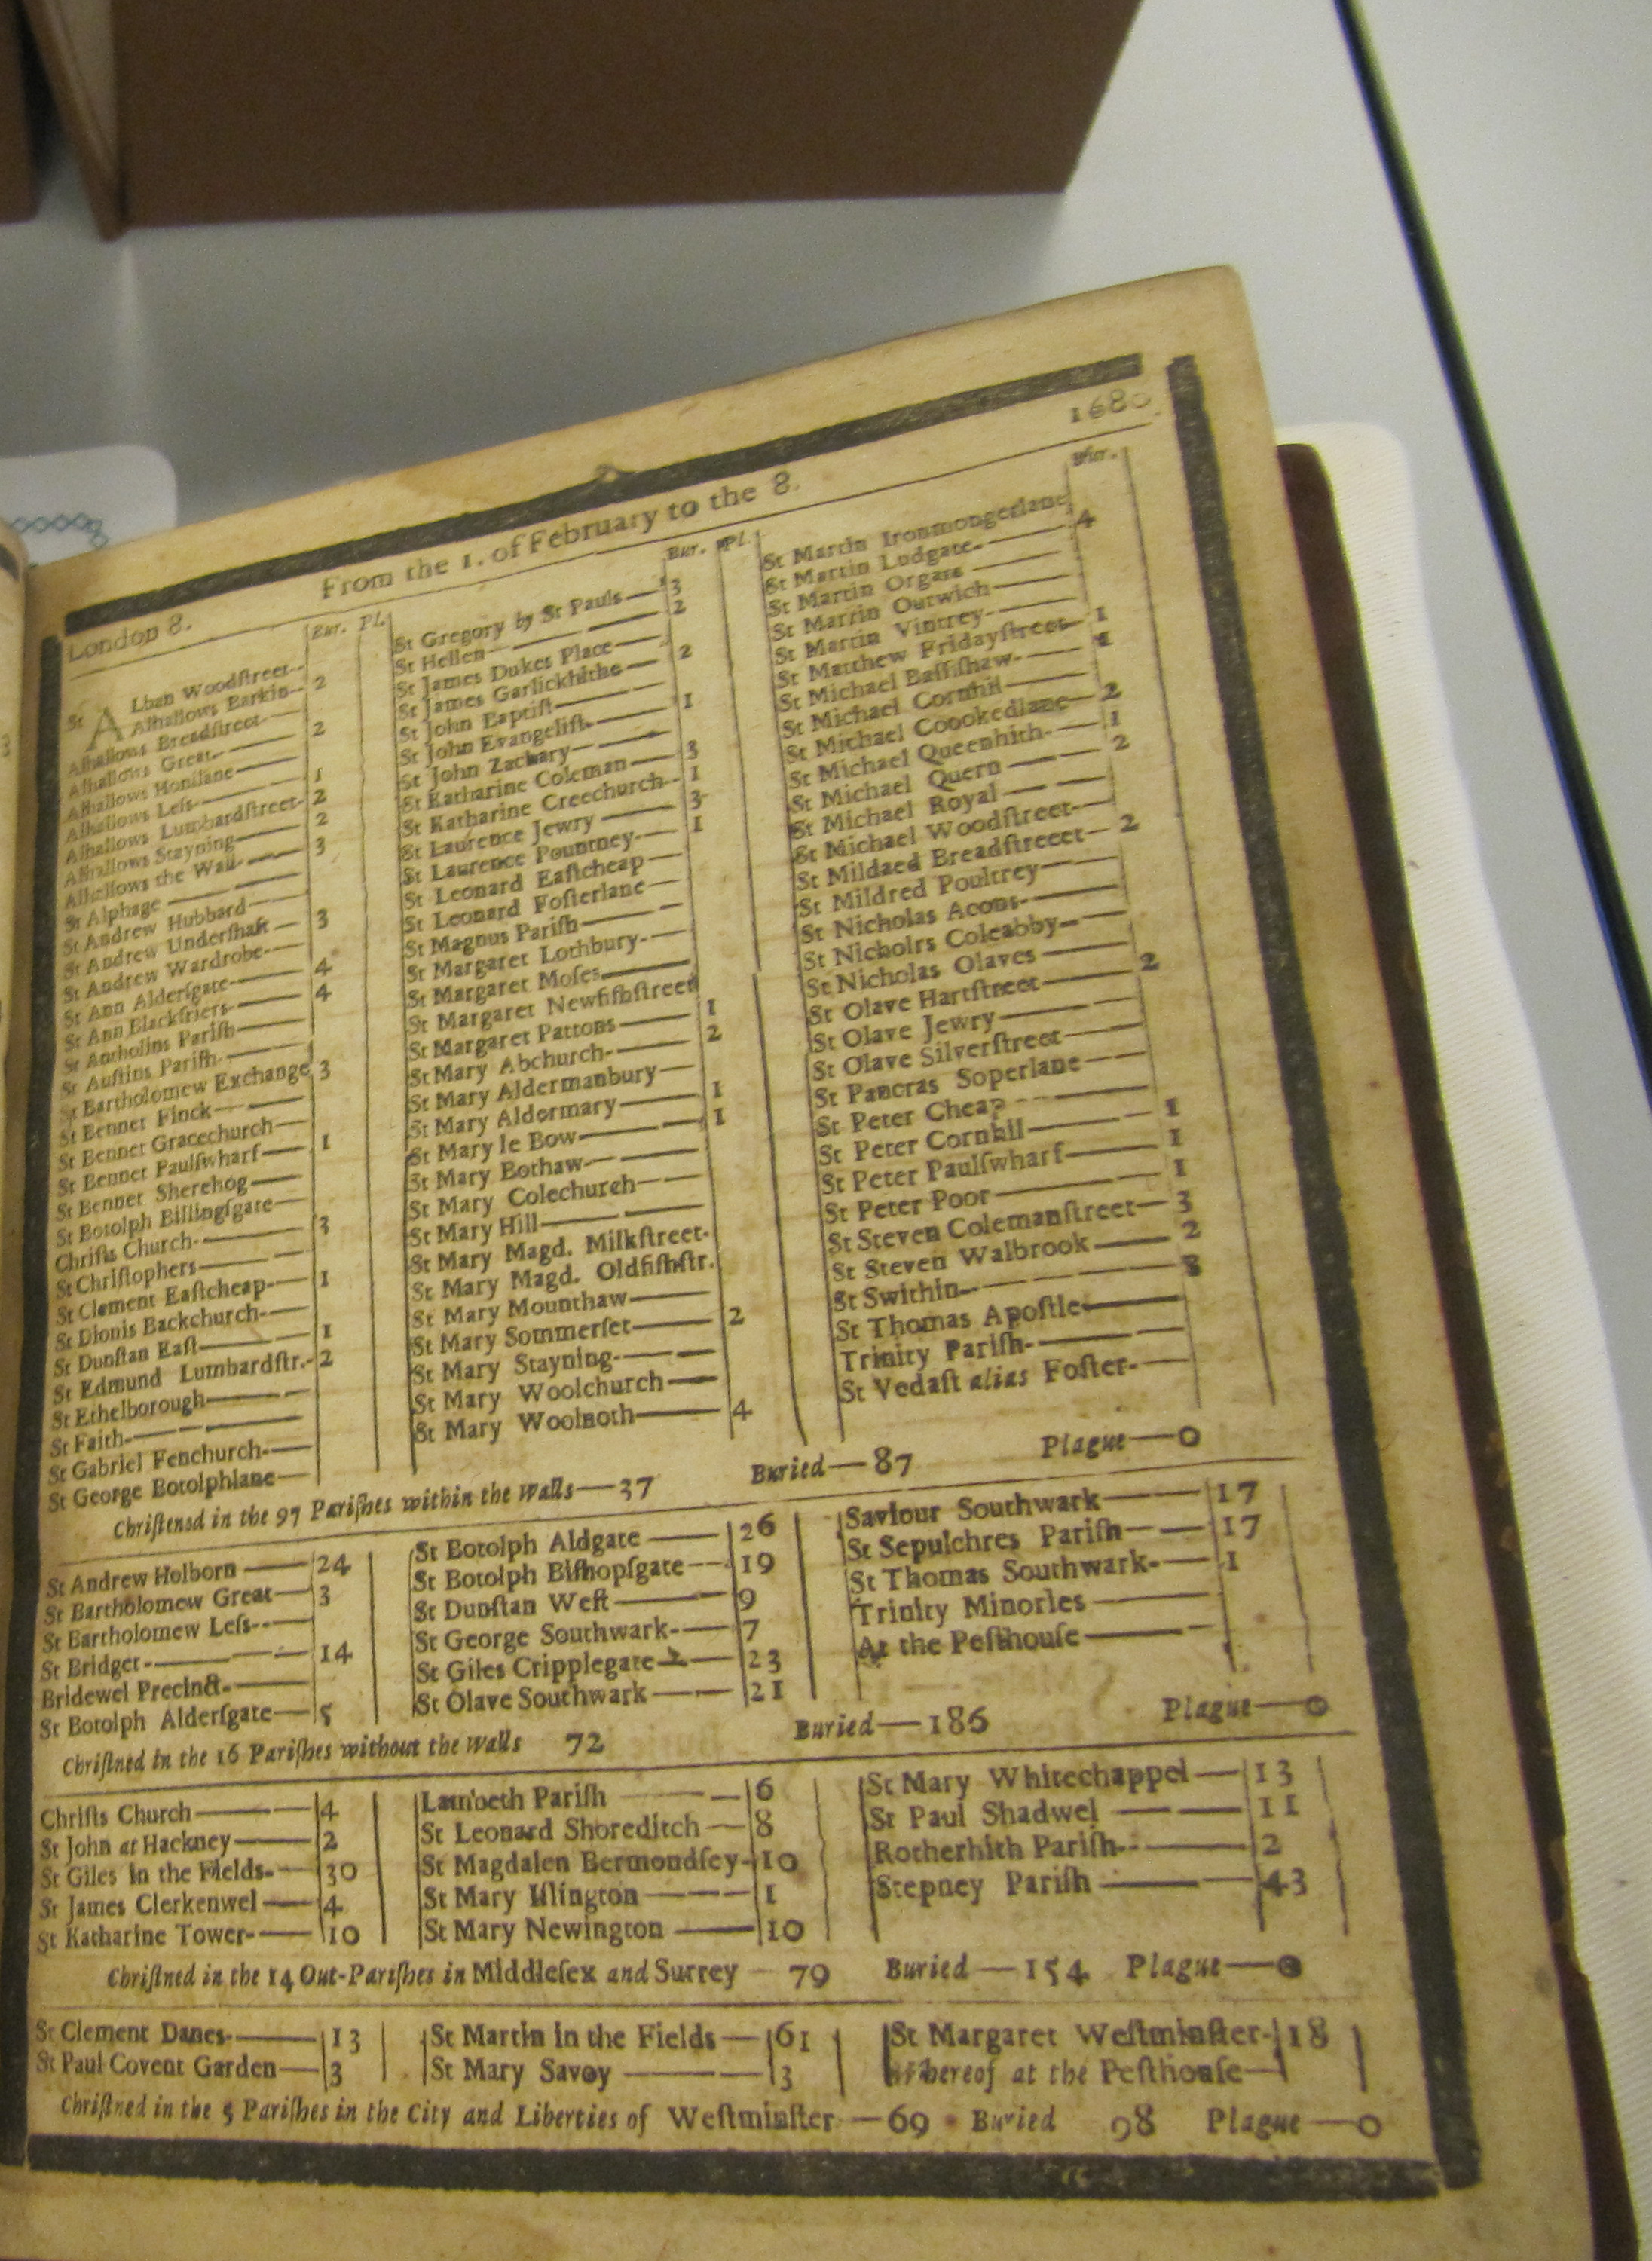 1680
London 8. From the 1. of February to the 8.
Bur. Pl.
St ALban Woodſtreet--
Alhallows Barkin-- 2
Alhallows Breadſtreet—
Alhallows Great— 2
Alhallows Honilane—
Alhallows Leſs— 1
Alhallows Lumbardſtreet- 2
Alhallows Stayning— 2
Alhallows the Wall— 3
St Alphage —
St Andrew Hubbard—
St Andrew Underſhaft — 3
St Andrew Wardrobe—
St Ann Alderſgate— 4
St Ann Blackfriers— 4
St Antholins Pariſh—
St Auſtins Pariſh—
St Bartholomew Exchange 3
St Bennet Finck—
St Bennet Gracechurch—
St Bennet Paulſwharf— 1
St Bennet Sherehog—
St Botolph Billingſgate—
Chriſts Church— 3
St Chriſtophers—
St Clement Eaſtcheap— 1
St Dionis Backchurch—
St Dunſtan Eaſt— 1
St Edmund Lumbardſtr.- 2
St Ethelborough—
St Faith—
St Gabriel Fenchurch—
St George Botolphlane—
Bur. Pl.
St Gregory by St Pauls — 3
St Hellen— 2
St James Dukes Place—
St James Garlickhithe— 2
St John Baptiſt—
St John Evangeliſt— 1
St John Zachary—
St Katharine Coleman— 3
St Katharine Creechurch-- 1
St Laurence Jewry — 3
St Laurence Pountney— 1
St Leonard Eaſtcheap—
St Leonard Foſterlane—
St Magnus Pariſh—
St Margaret Lothbury—
St Margaret Moſes—
St Margaret Newfiſhſtreet
St Margaret Pattons— 1
St Mary Abchurch— 2
St Mary Aldermanbury—
St Mary Aldermary— 1
St Mary le Bow— 1
St Mary Bothaw—
St Mary Colechurch—
St Mary Hill—
St Mary Magd. Milkſtreet-
St Mary Magd. Oldfiſhſtr.
St Mary Mounthaw—
St Mary Sommerſet— 2
St Mary Stayning—
St Mary Woolchurch—
St Mary Woolnoth— 4
Bur.
St Martin Ironmongerlane
St Martin Ludgate— 4
St Martin Orgars—
St Martin Outwich—
St Martin Vintrey—
St Matthew Fridayſtreet— 1
St Michael Baſſiſhaw— 1
St Michael Cornhil—
St Michael Coookedlane— 2
St Michael Queenhith— 1
St Michael Quern— 2
St Michael Royal—
St Michael Woodſtreet—
St Mildaed Breadſtreeet— 2
St Mildred Poultrey—
St Nicholas Acons—
St Nicholrs Coleabby—
St Nicholas Olaves—
St Olave Hartſtreet— 2
St Olave Jewry—
St Olave Silverſtreet—
St Pancras Soperlane—
St Peter Cheap—
St Peter Cornhil— 1
St Peter Paulſwharf— 1
St Peter Poor— 1
St Steven Colemanſtreet— 3
St Steven Walbrook— 2
St Swithin—
St Thomas Apoſtle—
Trinity Pariſh—
St Vedaſt alias Foſter—
Chriſtened in the 97 Pariſhes within the Walls—37 Buried—87 Plague—0
St Andrew Holborn —24
St Bartholomew Great—3
St Bartholomew Leſs--
St Bridget—14
Bridewel Precinct—
St Botolph Alderſgate—5
St Botolph Aldgate —26
St Botolph Biſhopſgate—19
St Dunſtan Weſt—9
St George Southwark—7
St Giles Cripplegate—23
St Olave Southwark—21
Saviour Southwark—17
St Sepulchres Pariſh—17
St Thomas Southwark—1
Trinity Minories—
At the Peſthouſe—
Chriſtned in the 16 Pariſhes without the Walls 72 Buried—186 Plague—0
Chriſts Church—4
St John at Hackney—2
St Giles in the Fields—30
St James Clerkenwel—4
St Katharine Tower—10
Lambeth Pariſh —6
St Leonard Shoreditch—8
St Magdalen Bermondſey-10
St Mary Iſlington—1
St Mary Newington—10
St Mary Whitechappel—13
St Paul Shadwel—11
Rotherhith Pariſh--2
Stepney Pariſh—43
Chriſtned in the 14 Out-Pariſhes in Middleſex and Surrey — 79 Buried—154 Plague—0
St Clement Danes—13
St Paul Covent Garden—3
St Martin in the Fields—61
St Mary Savoy—3
St Margaret Weſtminſter-18
Whereof at the Peſthouſe—
Chriſtned in the 5 Pariſhes in the City and Liberties of Weſtminſter—69 Buried 98 Plague—0